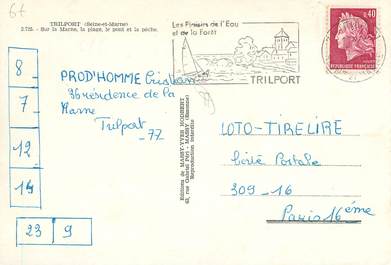 67
TRILPORT (Seine-et-Marne)
2.725. - Sur la Marne, la plage, le pont et la pêche.
Les Plaisirs de l'Eau
et de la Forêt
TRILPORT
0,40
REPUBLIQUE FRANÇAISE
8
7
12
14
23 9
PROD'HOMME Cristian
36 résidence de la
Marne
Trilport
77
Editions de MASSY-YVES
63, rue Gabriel Péri - MASSY (Essonne)
Reproduction interdite
LOTO-TIRELIRE
Boite Postale
309-16
Paris 16ème